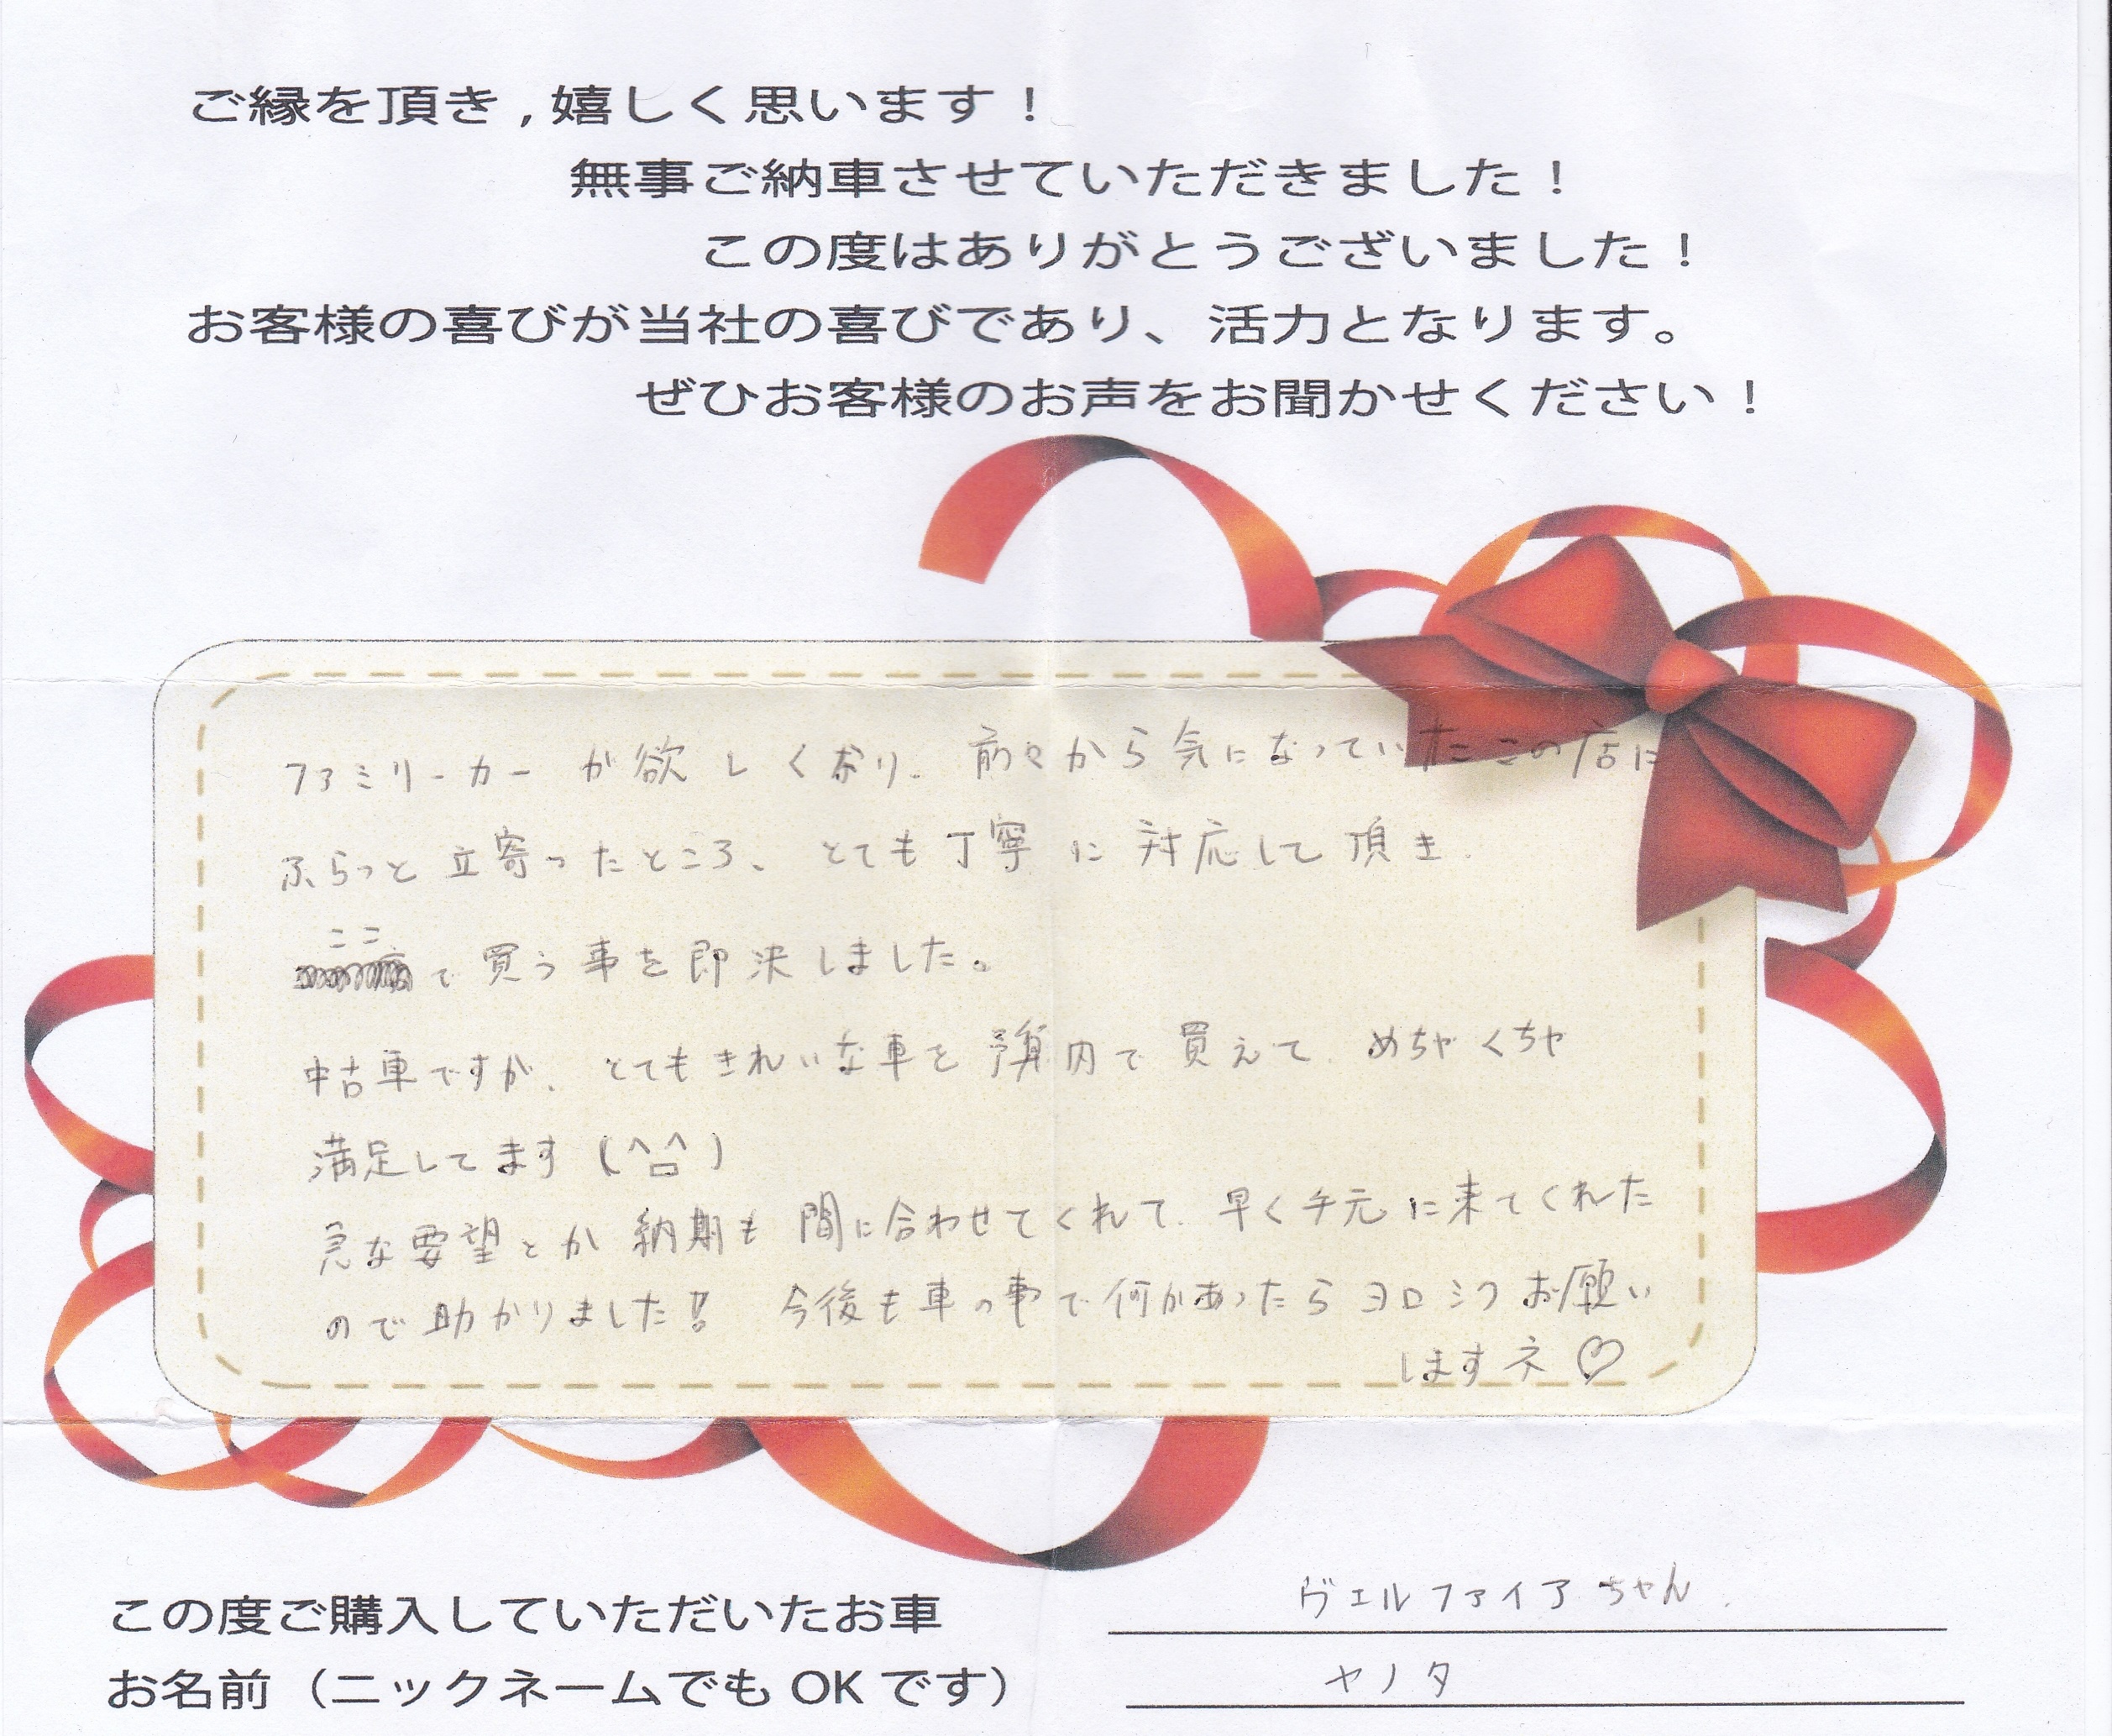 ご縁を頂き,嬉しく思います！
無事ご納車させていただきました！
この度はありがとうございました！
お客様の喜びが当社の喜びであり、活力となります。
ぜひお客様のお声をお聞かせください！
ファミリーカーが欲しくおり、前々から気になっていたこの店に
ふらっと立寄ったところ、とても丁寧に対応して頂き、
ここ
で買う事を即決しました。
中古車ですが、とてもきれいな車を予算内で買えて、めちゃくちゃ
満足してます(^ロ^)
急な要望とか納期も間に合わせてくれて、早く手元に来てくれた
ので助かりました!! 今後も車の事で何かあったらヨロシクお願い
しますネ♡
この度ご購入していただいたお車 ヴェルファイアちゃん.
お名前（ニックネームでもOKです） ヤノタ